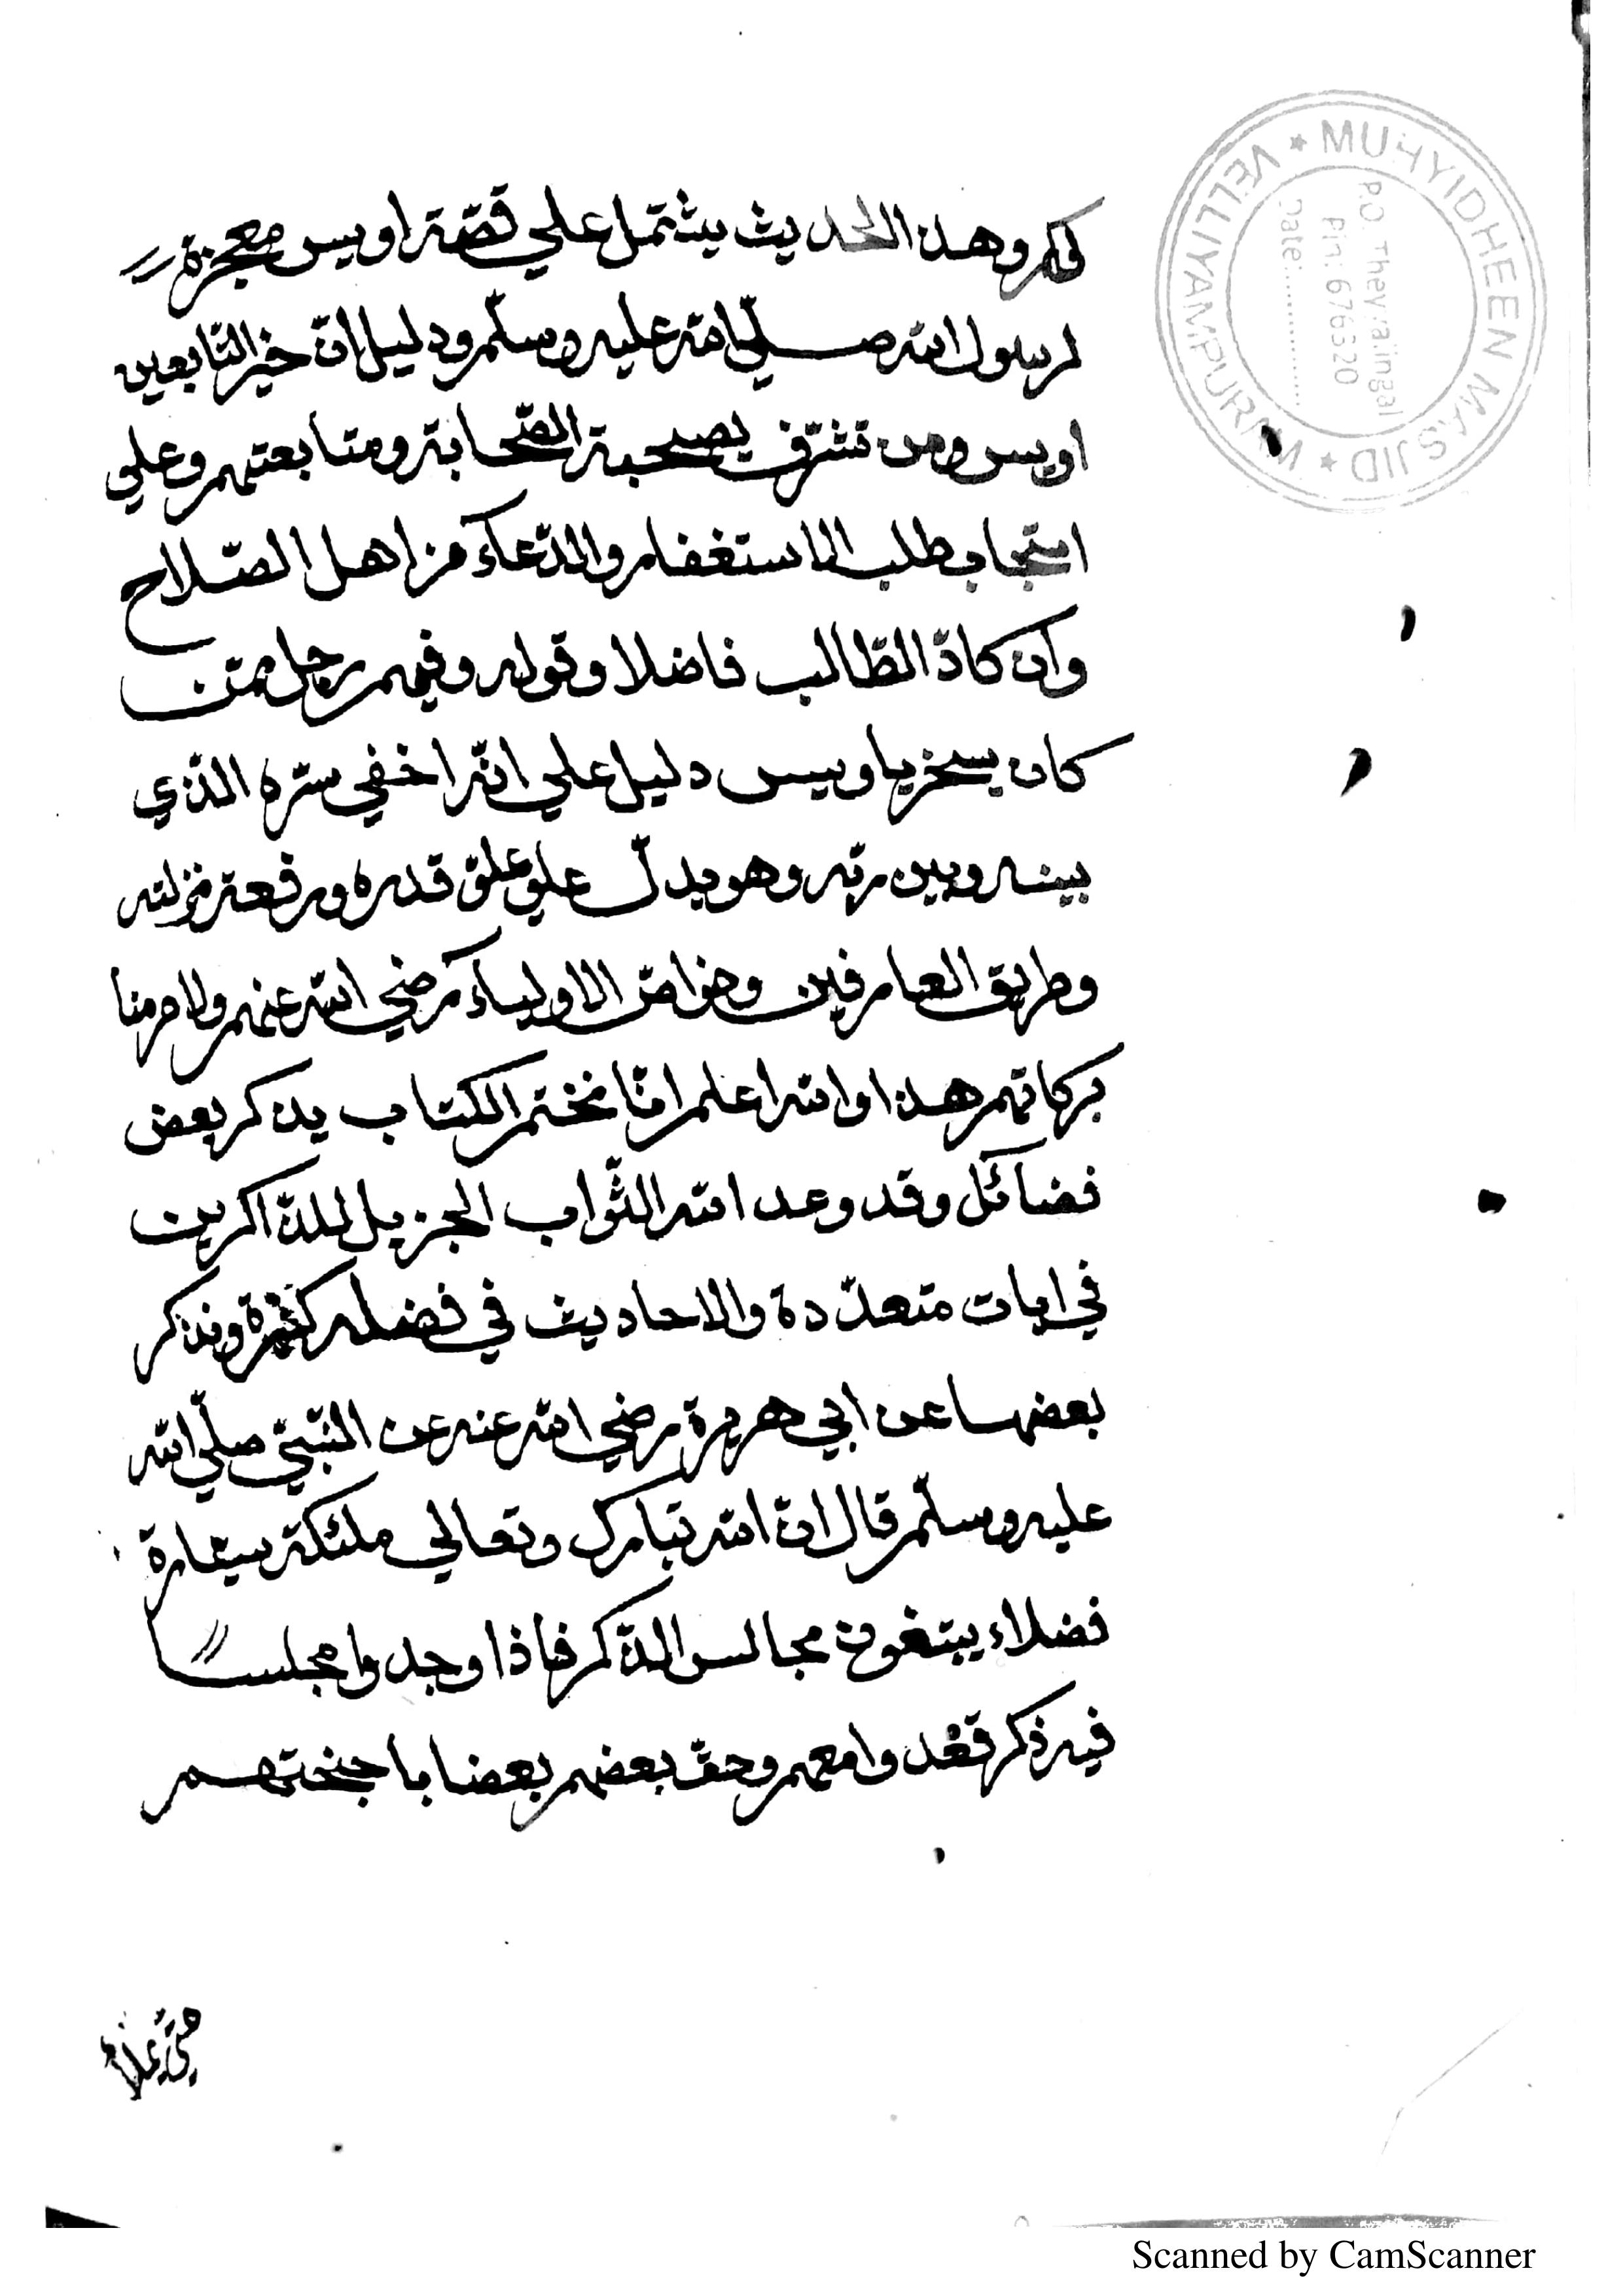 لكم وهذا الحديث يشتمل علي قصّة اويس معجزة
لرسول الله صلّي الله عليه وسلّم ودليل انّ خير التّابعين
اويس ومن تشرّف بصحبة الصّحابة ومتابعتهم وعلي
استحباب طلب الاستغفار والدّعاء من اهل الصّلاح
وان كانّ الطّالب فاضلا وقوله وفيهم رجل ممّن
كان يسخر باويس دليل علي انّه اخفي سرّه الّذي
بينه وبين ربّه وهو يدلّ علي علوّ قدره ورفعة منزلته
وطريق العارفين وخواصّ الاولياء رضي الله عنهم ولا حرمنا
بركاتهم هذا والله اعلم انّا نختم الكتاب بذكر بعض
فضائل وقد وعد الله الثّواب الجزيل للذّاكرين
في ايات متعدّدة والاحاديث في فضله كثيرة ونذكر
بعضها عن ابي هريرة رضي الله عنه عن النّبيّ صلّي الله
عليه وسلّم قال انّ الله تبارك وتعالي ملئكة سيّارة
فضلاء يبتغون مجالس الذّكر فاذا وجدوا مجلسا
فيه ذكر قعدوا معهم وحفّ بعضهم بعضا باجنحتهم
MUHYIDHEEN MASJID ★ VELLIYAMPURAM ★
P.O. Theyyalingal
Pin: 676320
Date:..............
Scanned by CamScanner